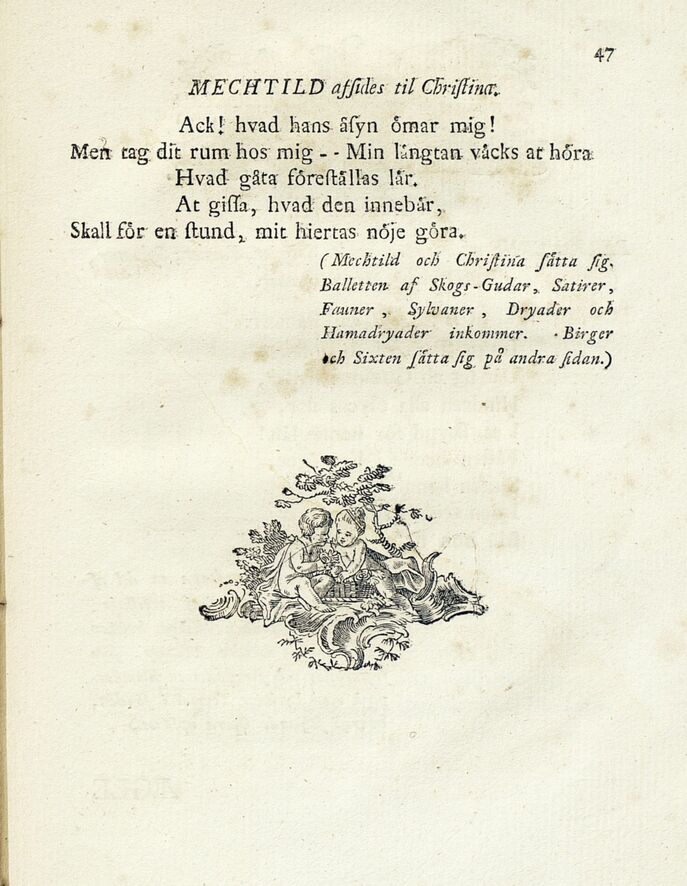 47
MECHTILD afſides til Chriſtina.
Ack! hvad hans åſyn ömar mig!
Men tag dit rum hos mig - - Min långtan våcks at höra
Hvad gåta föreſtållas lår.
At giſſa, hvad den innebår,
Skall för en ſtund, mit hiertas nöje göra.
(Mechtild och Chriſtina ſåtta ſig.
Balletten af Skogs-Gudar, Satirer,
Fauner, Sylvaner, Dryader och
Hamadryader inkommer. Birger
och Sixten ſåtta ſig på andra ſidan.)